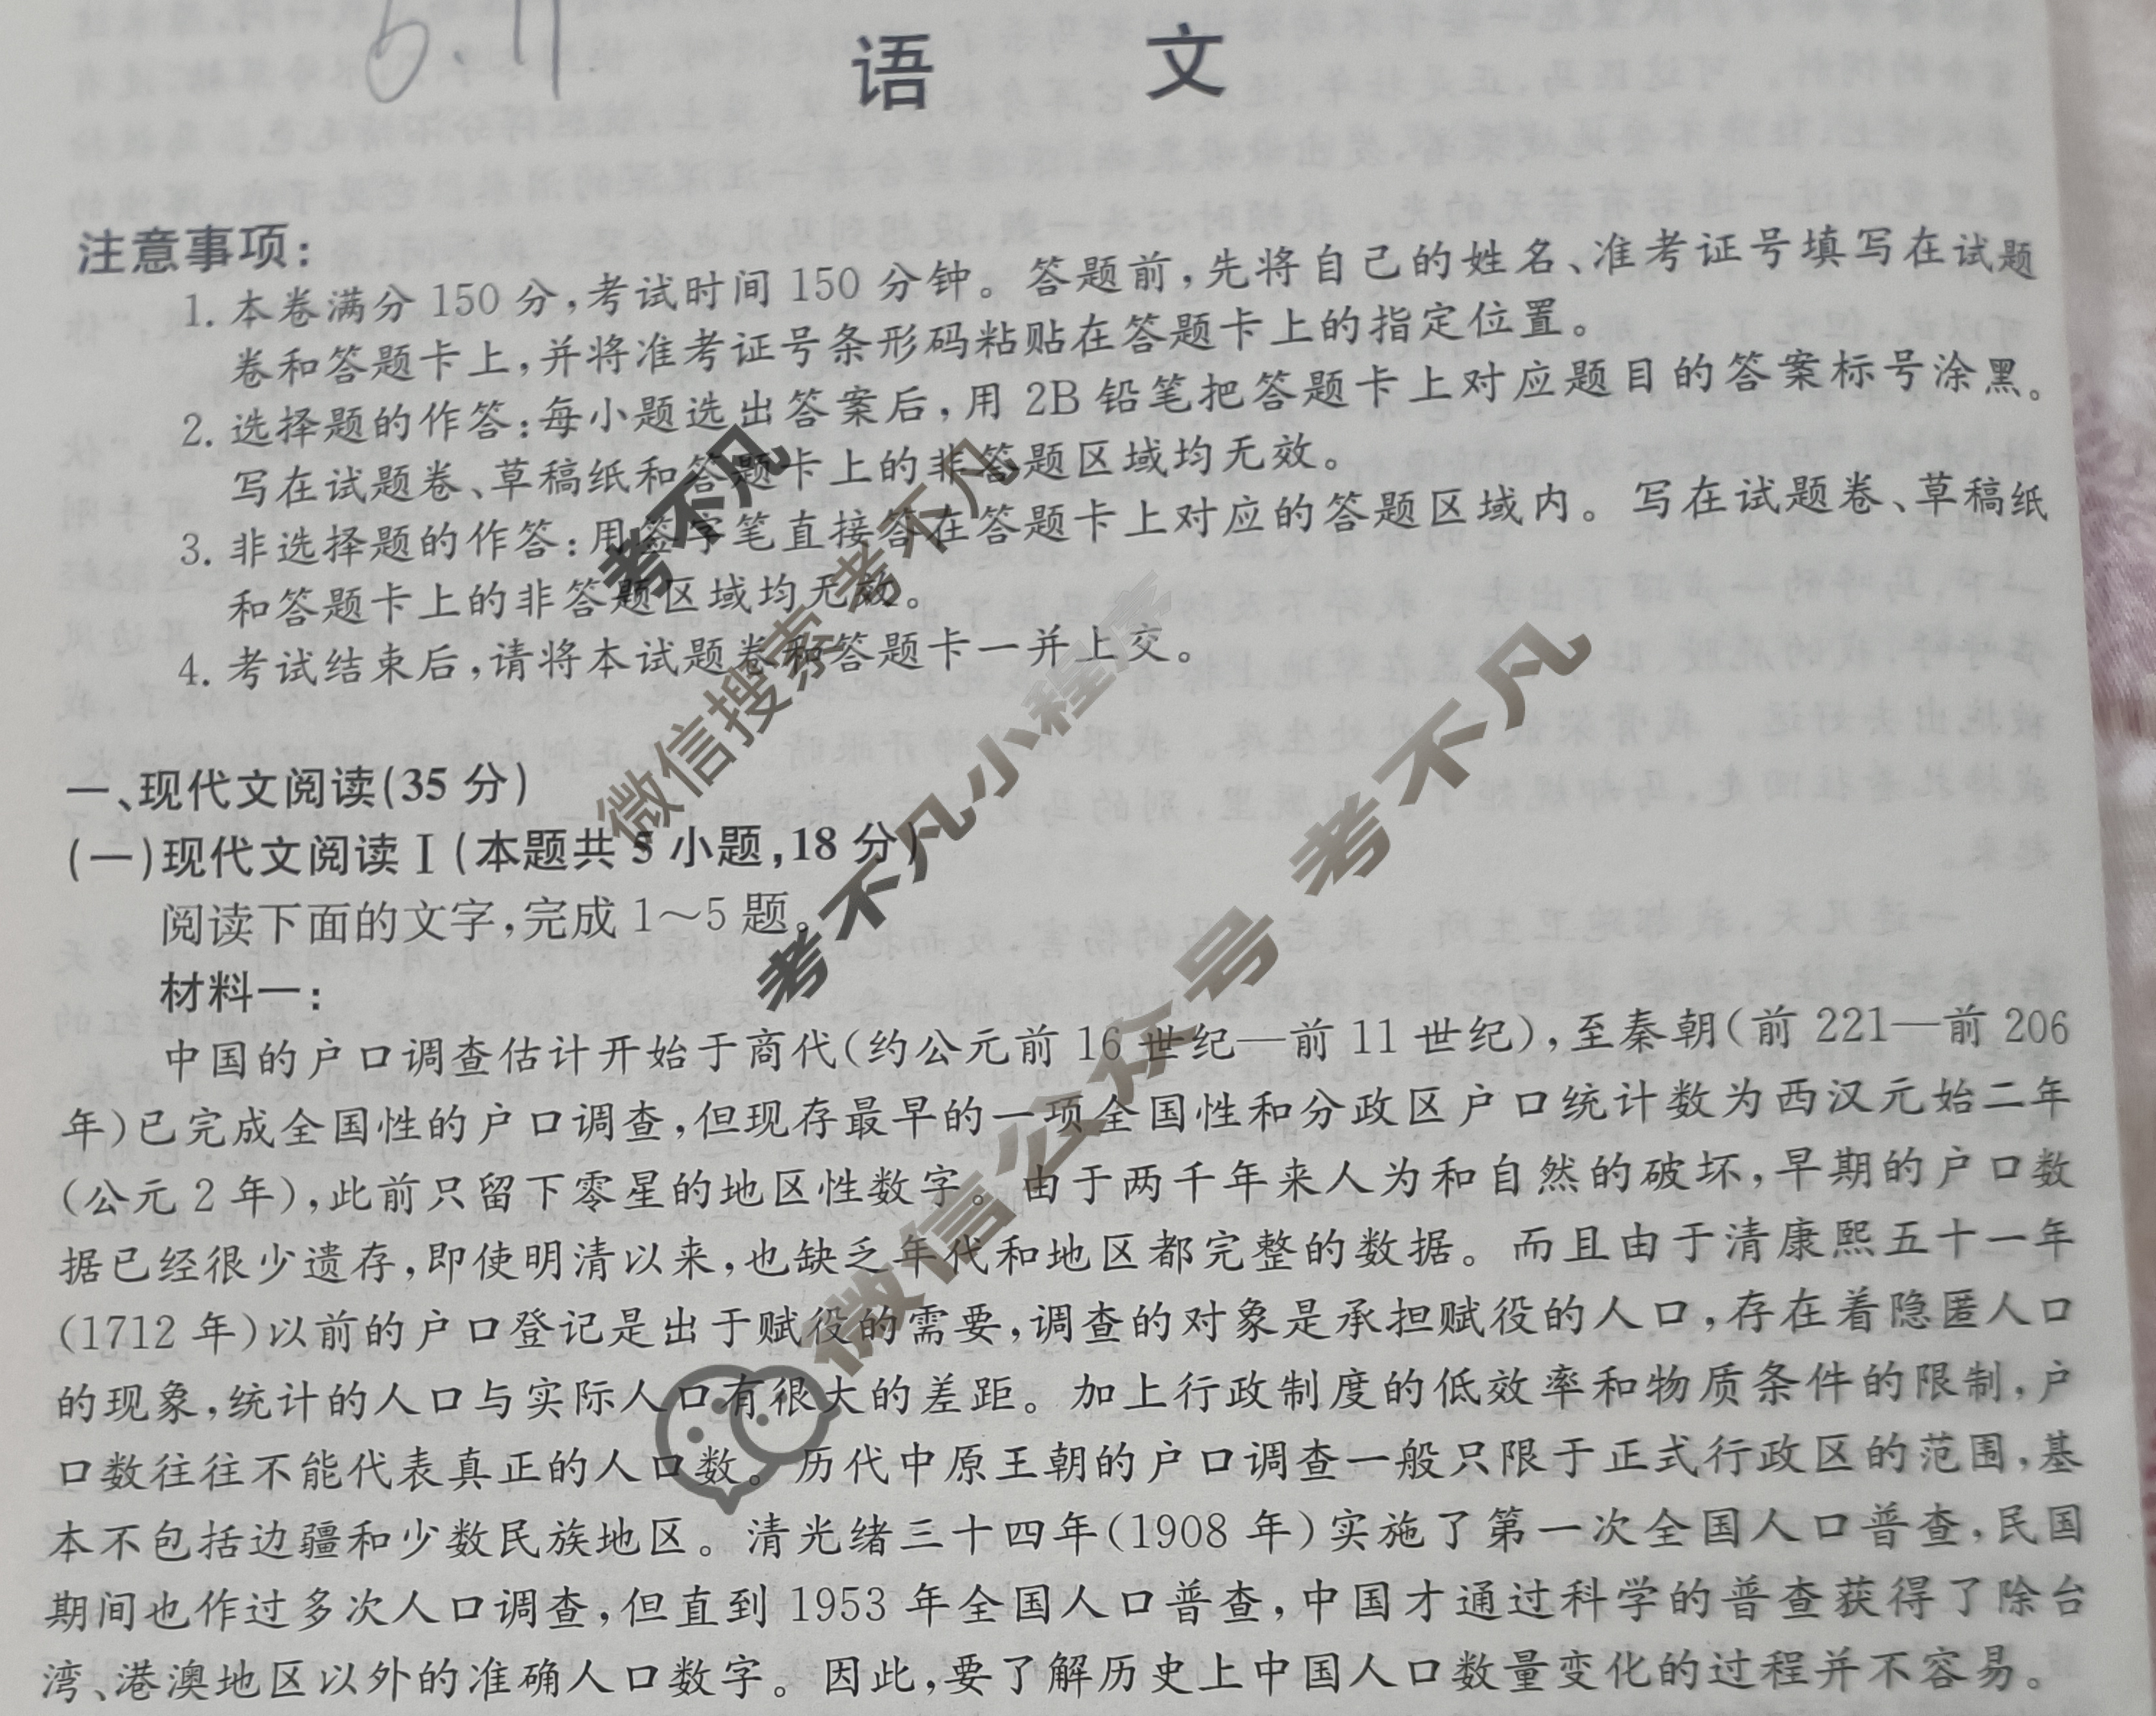 6.11
语 文
注意事项：
1. 本卷满分 150 分，考试时间 150 分钟。答题前，先将自己的姓名、准考证号填写在试题
卷和答题卡上，并将准考证号条形码粘贴在答题卡上的指定位置。
2. 选择题的作答：每小题选出答案后，用 2B 铅笔把答题卡上对应题目的答案标号涂黑。
写在试题卷、草稿纸和答题卡上的非答题区域均无效。
3. 非选择题的作答：用签字笔直接答在答题卡上对应的答题区域内。写在试题卷、草稿纸
和答题卡上的非答题区域均无效。
4. 考试结束后，请将本试题卷和答题卡一并上交。
一、现代文阅读(35 分)
(一)现代文阅读Ⅰ(本题共 5 小题，18 分)
阅读下面的文字，完成 1～5 题。
材料一：
中国的户口调查估计开始于商代(约公元前 16 世纪—前 11 世纪)，至秦朝(前 221—前 206
年)已完成全国性的户口调查，但现存最早的一项全国性和分政区户口统计数为西汉元始二年
(公元 2 年)，此前只留下零星的地区性数字。由于两千年来人为和自然的破坏，早期的户口数
据已经很少遗存，即使明清以来，也缺乏年代和地区都完整的数据。而且由于清康熙五十一年
(1712 年)以前的户口登记是出于赋役的需要，调查的对象是承担赋役的人口，存在着隐匿人口
的现象，统计的人口与实际人口有很大的差距。加上行政制度的低效率和物质条件的限制，户
口数往往不能代表真正的人口数。历代中原王朝的户口调查一般只限于正式行政区的范围，基
本不包括边疆和少数民族地区。清光绪三十四年(1908 年)实施了第一次全国人口普查，民国
期间也作过多次人口调查，但直到 1953 年全国人口普查，中国才通过科学的普查获得了除台
湾、港澳地区以外的准确人口数字。因此，要了解历史上中国人口数量变化的过程并不容易。
考不凡
微信搜索 考不凡
考不凡小程序
微信公众号 考不凡